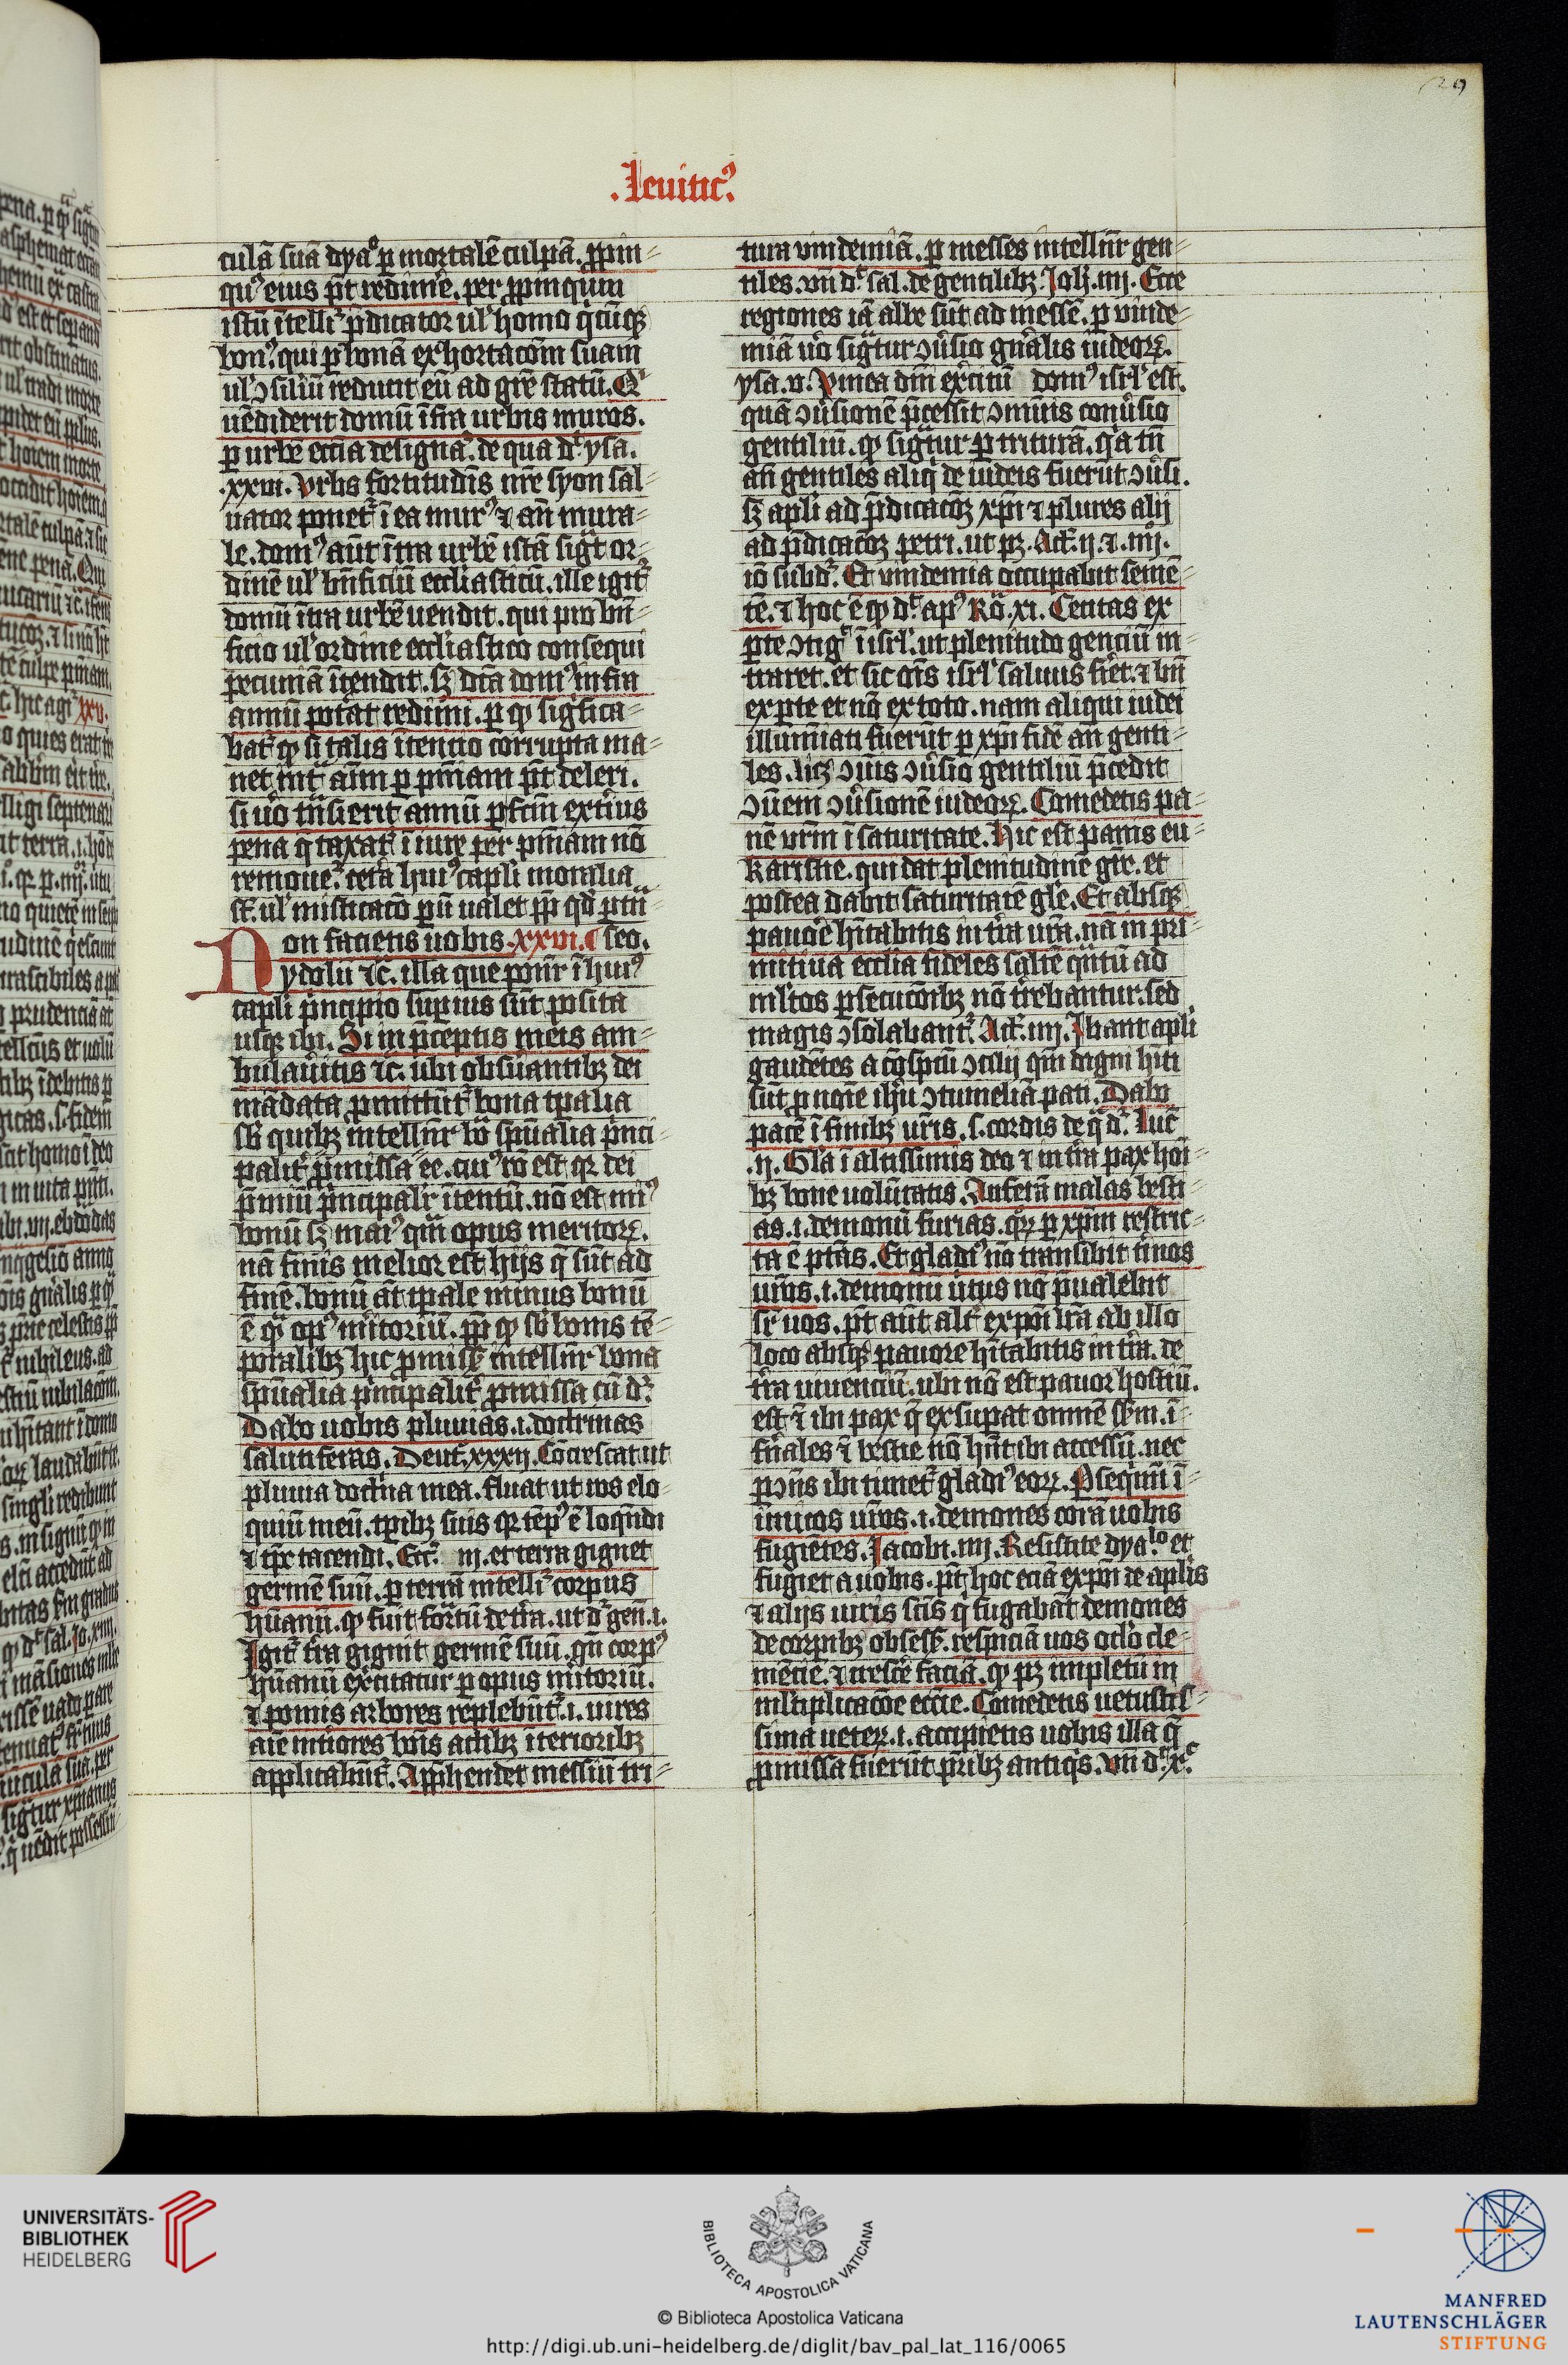 29
.Leuitic⁹.
culā suā dyaᵒ ꝑ mortalē culpā. ꝓpin-
qu⁹ eius pt̄ redimẽ. per ꝓpinquū
istū ītelliᵗ p̄dicator ulʼ homo q̄cūqꝫ
bon⁹. qui ꝑ bonā exhortacōm suam
ulʼ ↄsiliū reducit eū ad gr̄e statū. Qⁱ
uēdiderit domū īfra urbis muros.
ꝑ urbē ecc̄ia designaᵗ. de qua dʳ. ysa.
.xxvi. Vrbs fortitudīs nr̄e syon sal-
uator ponetʳ ī ea mur⁹ ⁊ an̄ mura-
le. dom⁹ aūt īfra urbē istā sigᵗ or-
dinē ulʼ bn̄ficiū eccl̄iasticū. ille igitʳ
domū īfra urbē uendit. qui pro bn̄-
ficio ulʼ ordine eccl̄iastico consequi
pecuniā ītendit. sꝫ dc̄a dom⁹ infra
annū pot̄at redimi. ꝑ qͩ sigᵗfica-
batʳ qͩ si talis ītentio corrupta ma-
net infᵃ ann̄ ꝑ pn̄iam pt̄ deleri.
si uō trāsierit annū ꝑfcm̄ exterius
pena q̄ taxatʳ ī iure per pn̄iam nō
remoueᵗ. cet̄a hui⁹ capl̄i moralia
sᵗ. ulʼ misticacō ꝑū ualet ꝓp̄ qͩ ptr̄
Non facietis uobis .xxvi. ¶ seo.
ydolū ⁊c̄. illa que ponr̄ ī hui⁹
capl̄i p̄ncipio suꝑius sūt posita
usqꝫ ibi. Si in p̄ceptis meis am-
bulaūitis ⁊c̄. ubi obsūantibꝫ dei
mādata ꝓmittūtʳ bona tp̄alia
sb̄ quibꝫ intellr̄ bō sp̄ualia p̄nci-
palitʳ ꝓmissa ēē. cui⁹ rō est qꝛ dei
p̄miū p̄ncipalr̄ ītentū. nō est mi⁹
bonū sꝫ mai⁹ qᵃm opus meritoꝝ.
nā finis melior est hijs q̄ sūt ad
finē. bonū āt tp̄ale minus bonū
ē qᵃ op⁹ m̄itoriū. ꝓp̄ qͩ sb̄ bonis tē-
poralibꝫ hic ꝓmissꝭ intellr̄ bona
sp̄ualia p̄ncipalitʳ ꝓmissa cū dʳ.
Dabo uobis pluuias .i. doctrinas
salutiferas. Deutʳ. xxxij. Cōcrescat ut
pluuia doctina mea. fluat ut ros elo-
quiū meū. tp̄ibꝫ suis qꝛ tēp⁹ ē loq̄ndi
⁊ tp̄c tacendi. Eccᶻ. iij. et terra gignet
germē suū. ꝑ terrā intelliᵗ corpus
hūanū. qͩ fuit formᵗū de tr̄a. ut dʳ gen̄. i.
Igitʳ tr̄a gignit germē suū. qn̄ corp⁹
hūanū excitatur ꝑ opus m̄itoriū.
⁊ pomis arbores replebūtʳ. i. uires
aīe int̄iores bōis actibꝫ īterioribꝫ
applicabūtʳ. Appͬhendet messiū tri-
tura vindemiā. ꝑ messes intellr̄ gen-
tiles. vn̄ dᵗ sal. de gentilibꝫ. Joh̄. iiij. Ecce
regiones iā albe sūt ad messē. ꝑ vinde-
miā uō sigᵗtur ↄūsio gn̄alis iudeoꝝ.
ysa. v. Vinea dm̄ exc̄ituū dom⁹ isrl̄ est.
quā ↄūsionē p̄cessit ↄmūis conūsio
gentiliū. qͩ sigᵗtur ꝑ trituram. qᵃa tn̄
an̄ gentiles aliqͥ de iudeis fuerūt ↄūsi.
sꝫ apl̄i ad p̄dicacōꝫ xp̄i ⁊ plures alij
ad p̄dicacōꝫ petri. ut pꝫ. Actʳ. ij. ⁊ .iiij.
iō subdʳ. Et vindemia occupabit semē-
tē. ⁊ hoc ē qͩ dᵗ ap⁹ Rō. xi. Cecitas ex
ꝑte ↄtigᵗ ī isrl̄. ut plenitudo genciū in-
traret. et sic oīs isrl̄ saluus fierᵗ. ⁊ bn̄
ex ꝑte et nō ex toto. nam aliqui iudei
illumīati fuerūt ꝑ xp̄i fidē an̄ genti-
les. licꝫ ↄūis ↄūsio gentiliū p̄cedit
ↄūem ↄūsionē iudeoꝝ. Comedetis pa-
nē vr̄m ī saturitate. Hic est panis eu-
karistie. qui dat plenitudinē gr̄e. et
postea dabit saturitatē gl̄e. Et absqꝫ
pauoͬe hītabitis in tr̄a ur̄a. nā in pri-
mitiua ecclīa fideles saltē qᵃntū ad
ml̄tos ꝑsecucōibꝫ nō tr̄ebantur. sed
magis ↄsolabantʳ. Actʳ. iiij. Ibant apl̄i
gaudētes a cōspcū ↄcilij qm̄ digni hīti
sūt ꝓ noīe ihū ↄtumeliā pati. Dabo
pacē ī finibꝫ ur̄is. s. cordis de q̄ dʳ. Luc̄
.ij. Gl̄a ī altissimis deo ⁊ in tr̄a pax hoī-
bꝫ bone uolūtatis. Auferā malas besti-
as. i. demonū furias. qᵒꝝ ꝑ xp̄m restric-
ta ē ptās. Et gladi⁹ nō transibit t̄mīos
ur̄os. i. demonū ūtus nō p̄ualebit
sr̄ uos. pt̄ aūt alitʳ expoī lr̄a ab illo
loco absqꝫ pauore hītabitis in tr̄a. de
tr̄a uiuenciū. ubi nō est pauor hostiū.
est ⁊ ibi pax q̄ exsupat omnē sēm. ī-
fn̄ales ⁊ bestie nō hn̄t ibi accessū. nec
ꝓↄn̄s ibi timetʳ gladi⁹ eoꝝ. Ꝑsequīm ī-
imicos ur̄os. i. demones corā uobis
fugiētes. Jacobi. iiij. Resistite dyaᵇlo et
fugiet a uobis. pt̄ hoc eciā exp̄oī de apl̄is
⁊ alijs uiris sc̄is q̄ fugabāt demones
de corꝑibꝫ obsessꝭ. respiciā uos oclʼo cle-
mēcie. ⁊ cresc̄e faciā. qͩ pꝫ impletū in
ml̄tiplicacōe ecc̄ie. Comedetis uetustis-
sima ueteꝝ. i. accipietis uobis illa q̄
ꝓmissa fuerūt pr̄ibꝫ antiqͥs. vn̄ dᵗ. xᶜ.
UNIVERSITÄTS-
BIBLIOTHEK
HEIDELBERG
BIBLIOTECA APOSTOLICA VATICANA
© Biblioteca Apostolica Vaticana
http://digi.ub.uni-heidelberg.de/diglit/bav_pal_lat_116/0065
MANFRED
LAUTENSCHLÄGER
STIFTUNG